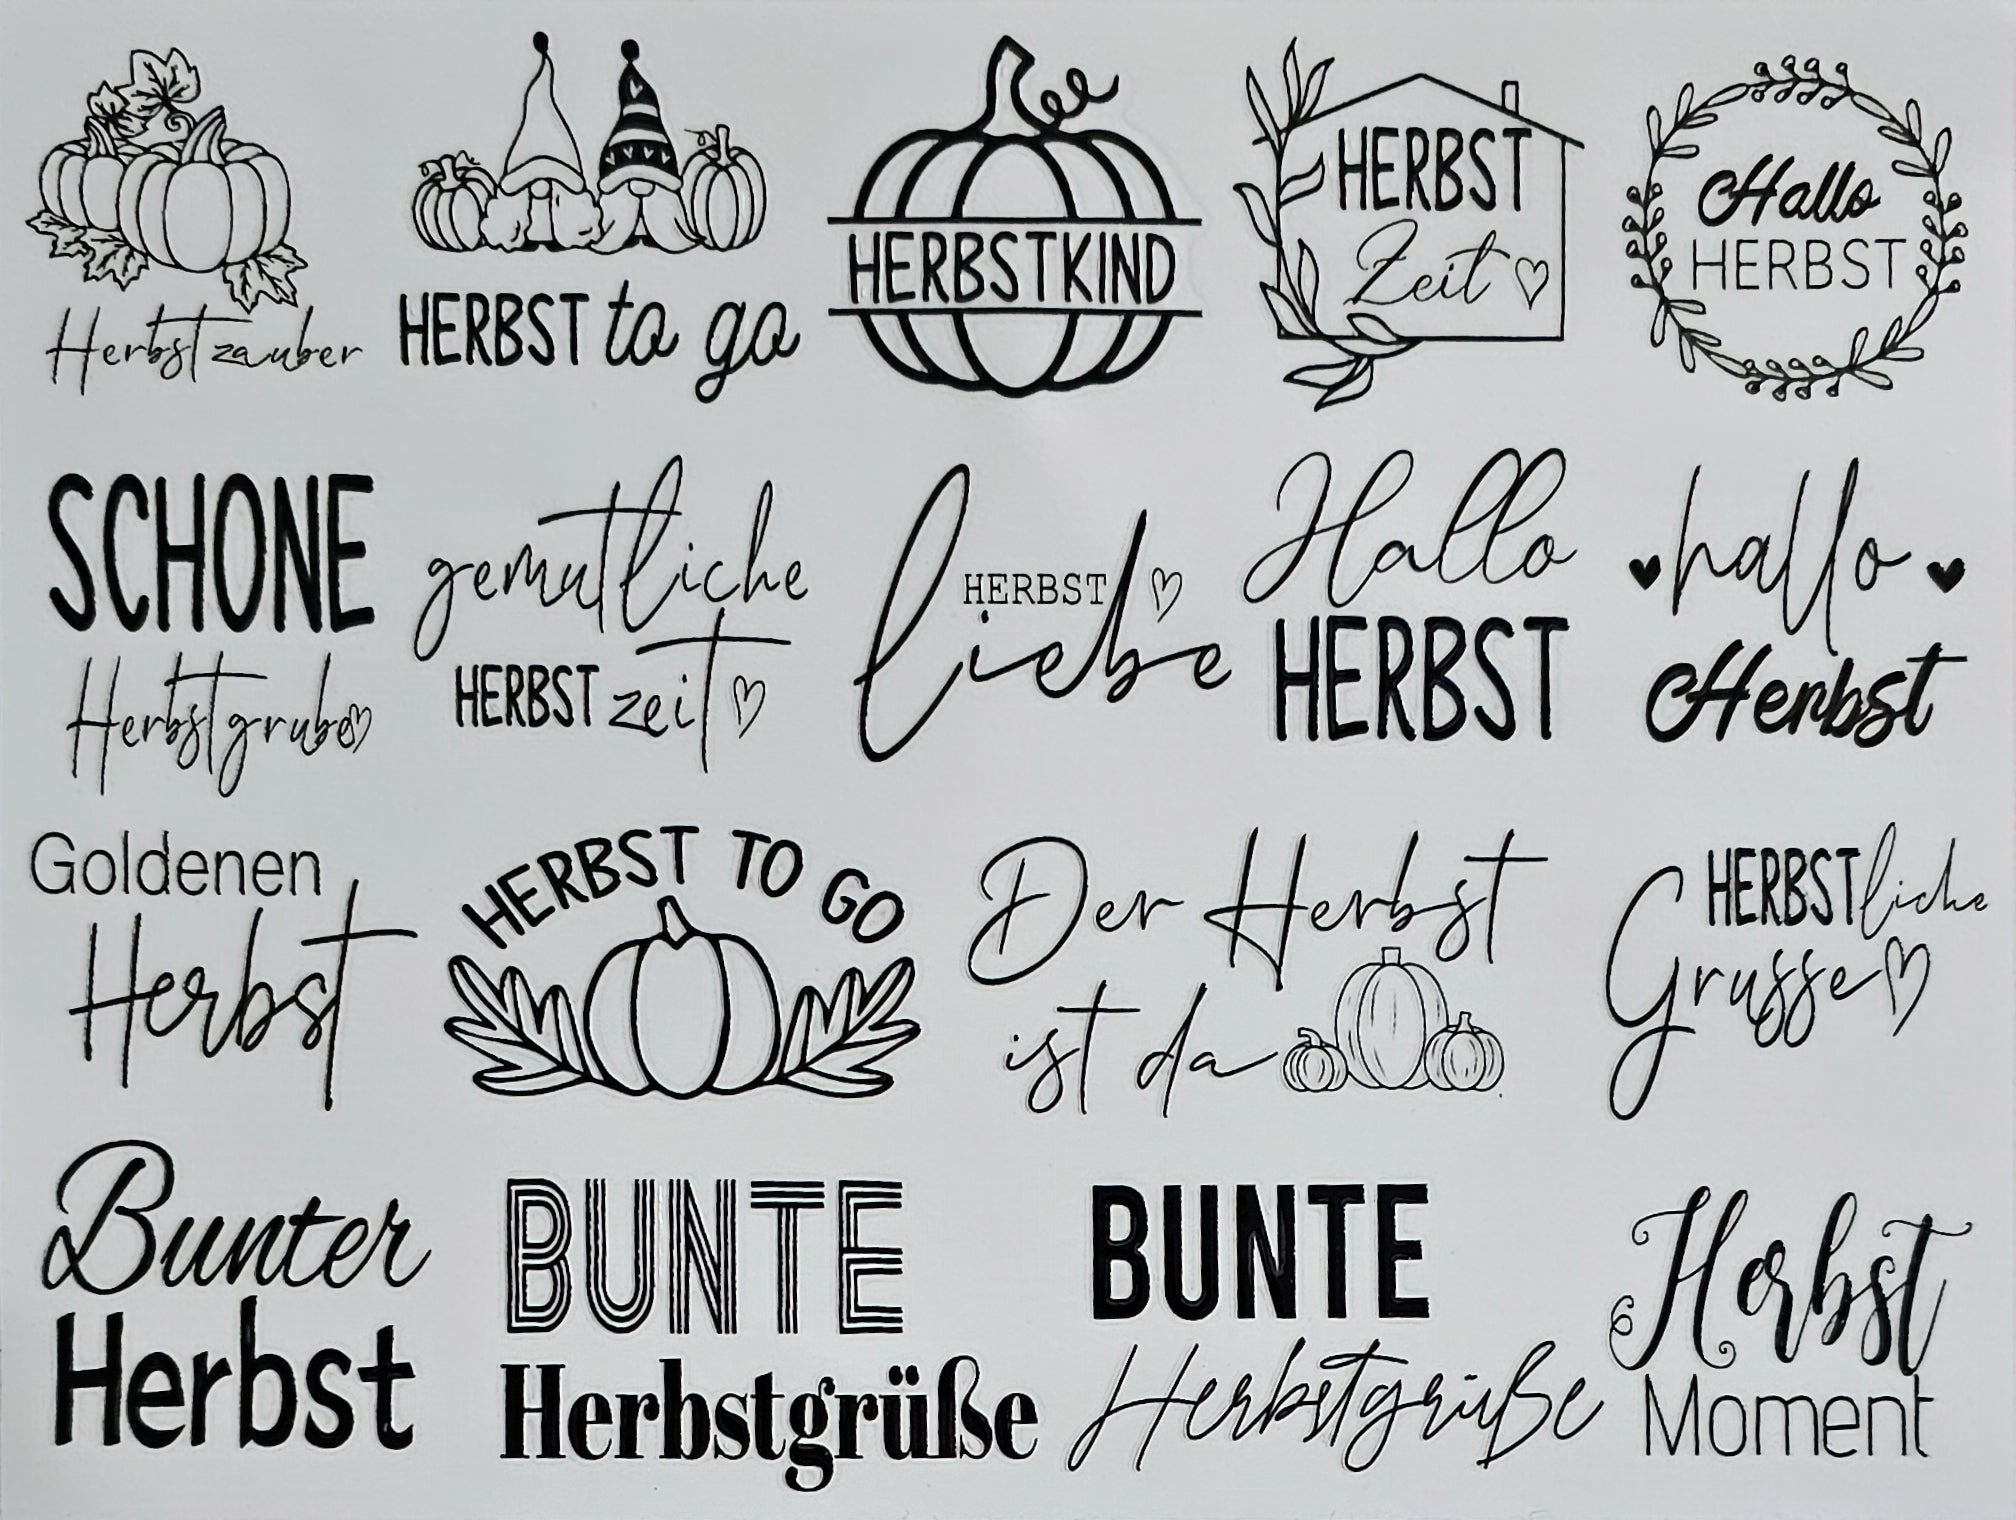 Herbstzauber
HERBST to go
HERBSTKIND
HERBST
Zeit
Hallo
HERBST
SCHONE
Herbstgrube
gemutliche
HERBST zeit
HERBST
liebe
Hallo
HERBST
hallo
Herbst
Goldenen
Herbst
HERBST TO GO
Der Herbst
ist da
HERBSTliche
Grusse
Bunter
Herbst
BUNTE
Herbstgrüße
BUNTE
Herbstgrüße
Herbst
Moment